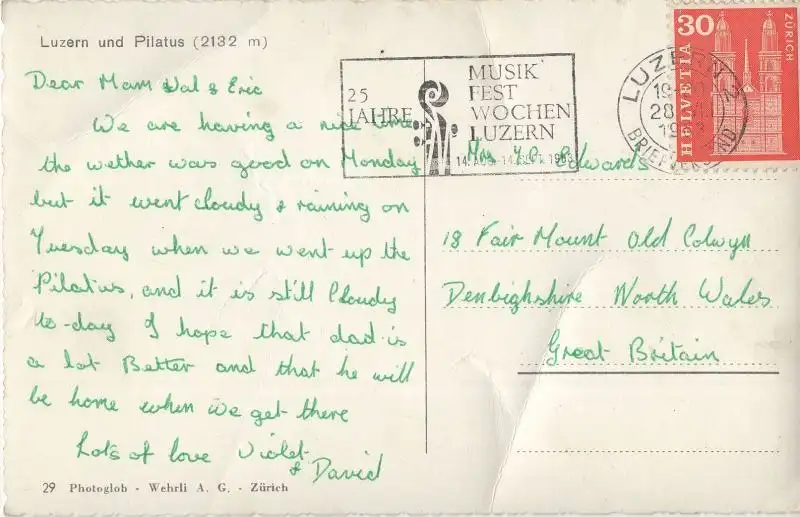 Luzern und Pilatus (2132 m)
Dear Mam Val & Eric
We are having a nice time
the wether was good on Monday
but it went cloudy & raining on
Tuesday when we went up the
Pilatus, and it is still Cloudy
to-day I hope that dad is
a lot Better and that he will
be home when we get there
Lots of love Violet
& David
29 Photoglob - Wehrli A. G. - Zürich
25
JAHRE
MUSIK
FEST
WOCHEN
LUZERN
14. AUG.-14. SEPT. 1963
LUZERN 2
28.
BRIEFVERSAND
30
HELVETIA
ZÜRICH
Mrs Edwards
18 Fair Mount Old Colwyn
Denbighshire North Wales
Great Britain